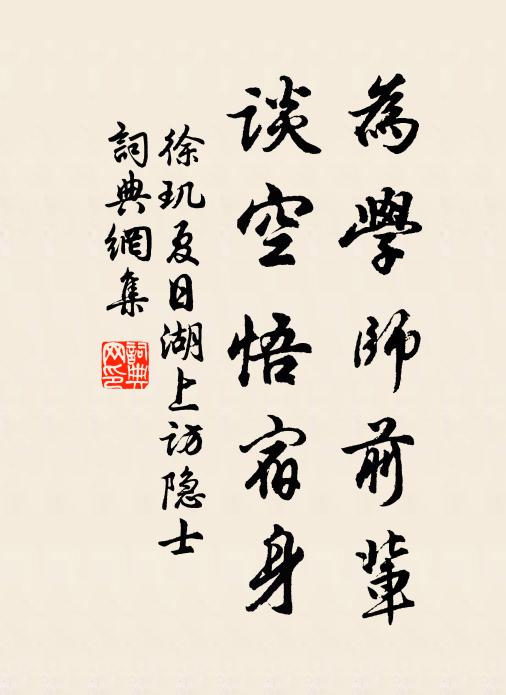 為學師前輩
谈空悟宿身
徐玑夏日湖上访隐士
詞典網集
詞典网印